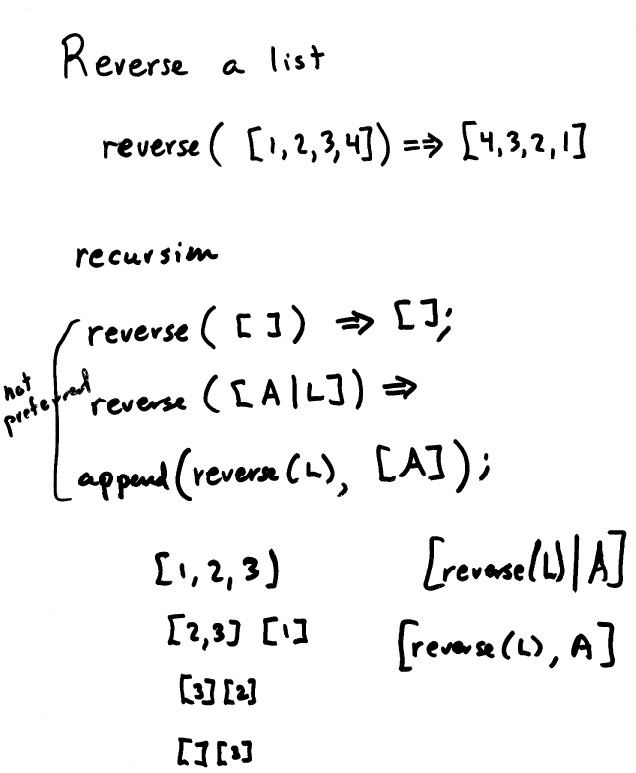 Reverse a list
reverse( [1,2,3,4]) ⇒ [4,3,2,1]
recursion
reverse( [ ] ) ⇒ [ ];
not preferred
reverse ([A|L]) ⇒
append(reverse(L), [A]);
[1, 2, 3]
[reverse(L)|A]
[2,3] [1]
[reverse(L), A]
[3] [2]
[] [3]